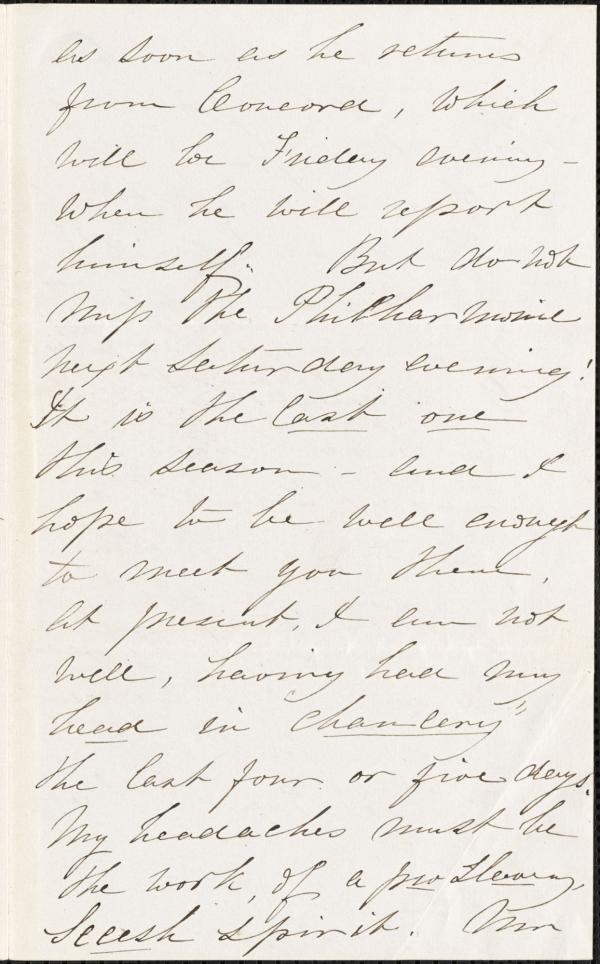 as soon as he returns
from Concord, which
will be Friday evening –
when he will report
himself. But do not
miss the Philharmonic
next Saturday evening!
It is the last one
this season – and I
hope to be well enough
to meet you there,
at present, I am not
well, having had my
head in "chancery"
the last four or five days.
My headaches must be
the work, of a pro Slavery,
Secesh spirit.